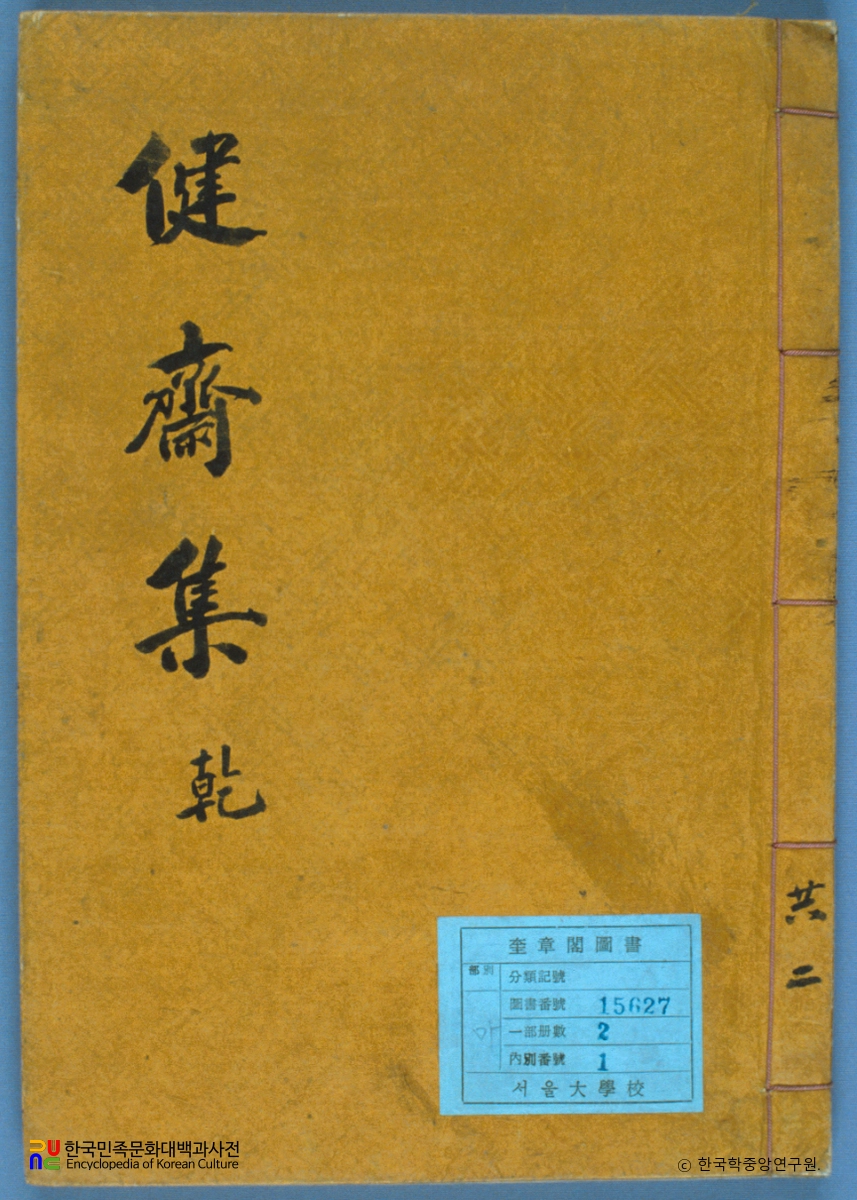 健齋集 乾
共二
奎章閣圖書
部別
分類記號
圖書番號 15627
一部册數 2
內別番號 1
서울大學校
한국민족문화대백과사전
Encyclopedia of Korean Culture
© 한국학중앙연구원.